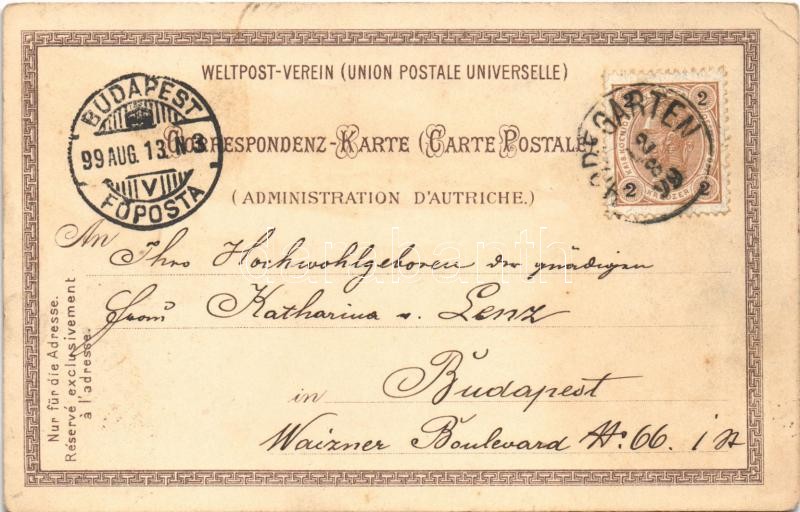 WELTPOST-VEREIN (UNION POSTALE UNIVERSELLE)
CORRESPONDENZ-KARTE (CARTE POSTALE)
(ADMINISTRATION D'AUTRICHE.)
BUDAPEST
99 AUG. 13. N3
V
FŐPOSTA
2
GARTEN
2 2
KREUZER
An Ihro Hochwohlgeboren der gnädigen
Frau Katharina v. Lenz
in Budapest
Waizner Boulevard №: 66. i St
Nur für die Adresse.
Réservé exclusivement
à l'adresse.
darabanth